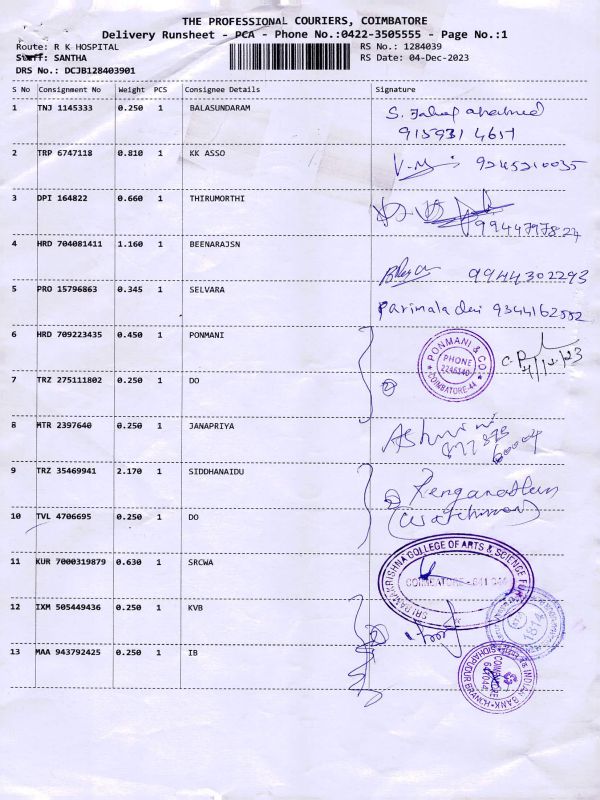 THE PROFESSIONAL COURIERS, COIMBATORE
Delivery Runsheet - PCA - Phone No.:0422-3505555 - Page No.:1
Route: R K HOSPITAL RS No.: 1284039
Staff: SANTHA RS Date: 04-Dec-2023
DRS No.: DCJB128403901
S No Consignment No Weight PCS Consignee Details Signature
1 TNJ 1145333 0.250 1 BALASUNDARAM
2 TRP 6747118 0.810 1 KK ASSO 9245210035
3 DPI 164822 0.660 1 THIRUMORTHI
4 HRD 704081411 1.160 1 BEENARAJSN 9944302293
5 PRO 15796863 0.345 1 SELVARA Parimala devi 9344162552
6 HRD 709223435 0.450 1 PONMANI PONMANI & CO. PHONE 2246140 COIMBATORE-44 4/12/23
7 TRZ 275111802 0.250 1 DO
8 MTR 2397640 0.250 1 JANAPRIYA
9 TRZ 35469941 2.170 1 SIDDHANAIDU Renganathan
10 TVL 4706695 0.250 1 DO (Watchman)
11 KUR 7000319879 0.630 1 SRCWA SRI RAMAKRISHNA COLLEGE OF ARTS & SCIENCE FOR COIMBATORE - 641 044
12 IXM 505449436 0.250 1 KVB 1814
13 MAA 943792425 0.250 1 IB INDIAN BANK SIDHAPUDUR BRANCH